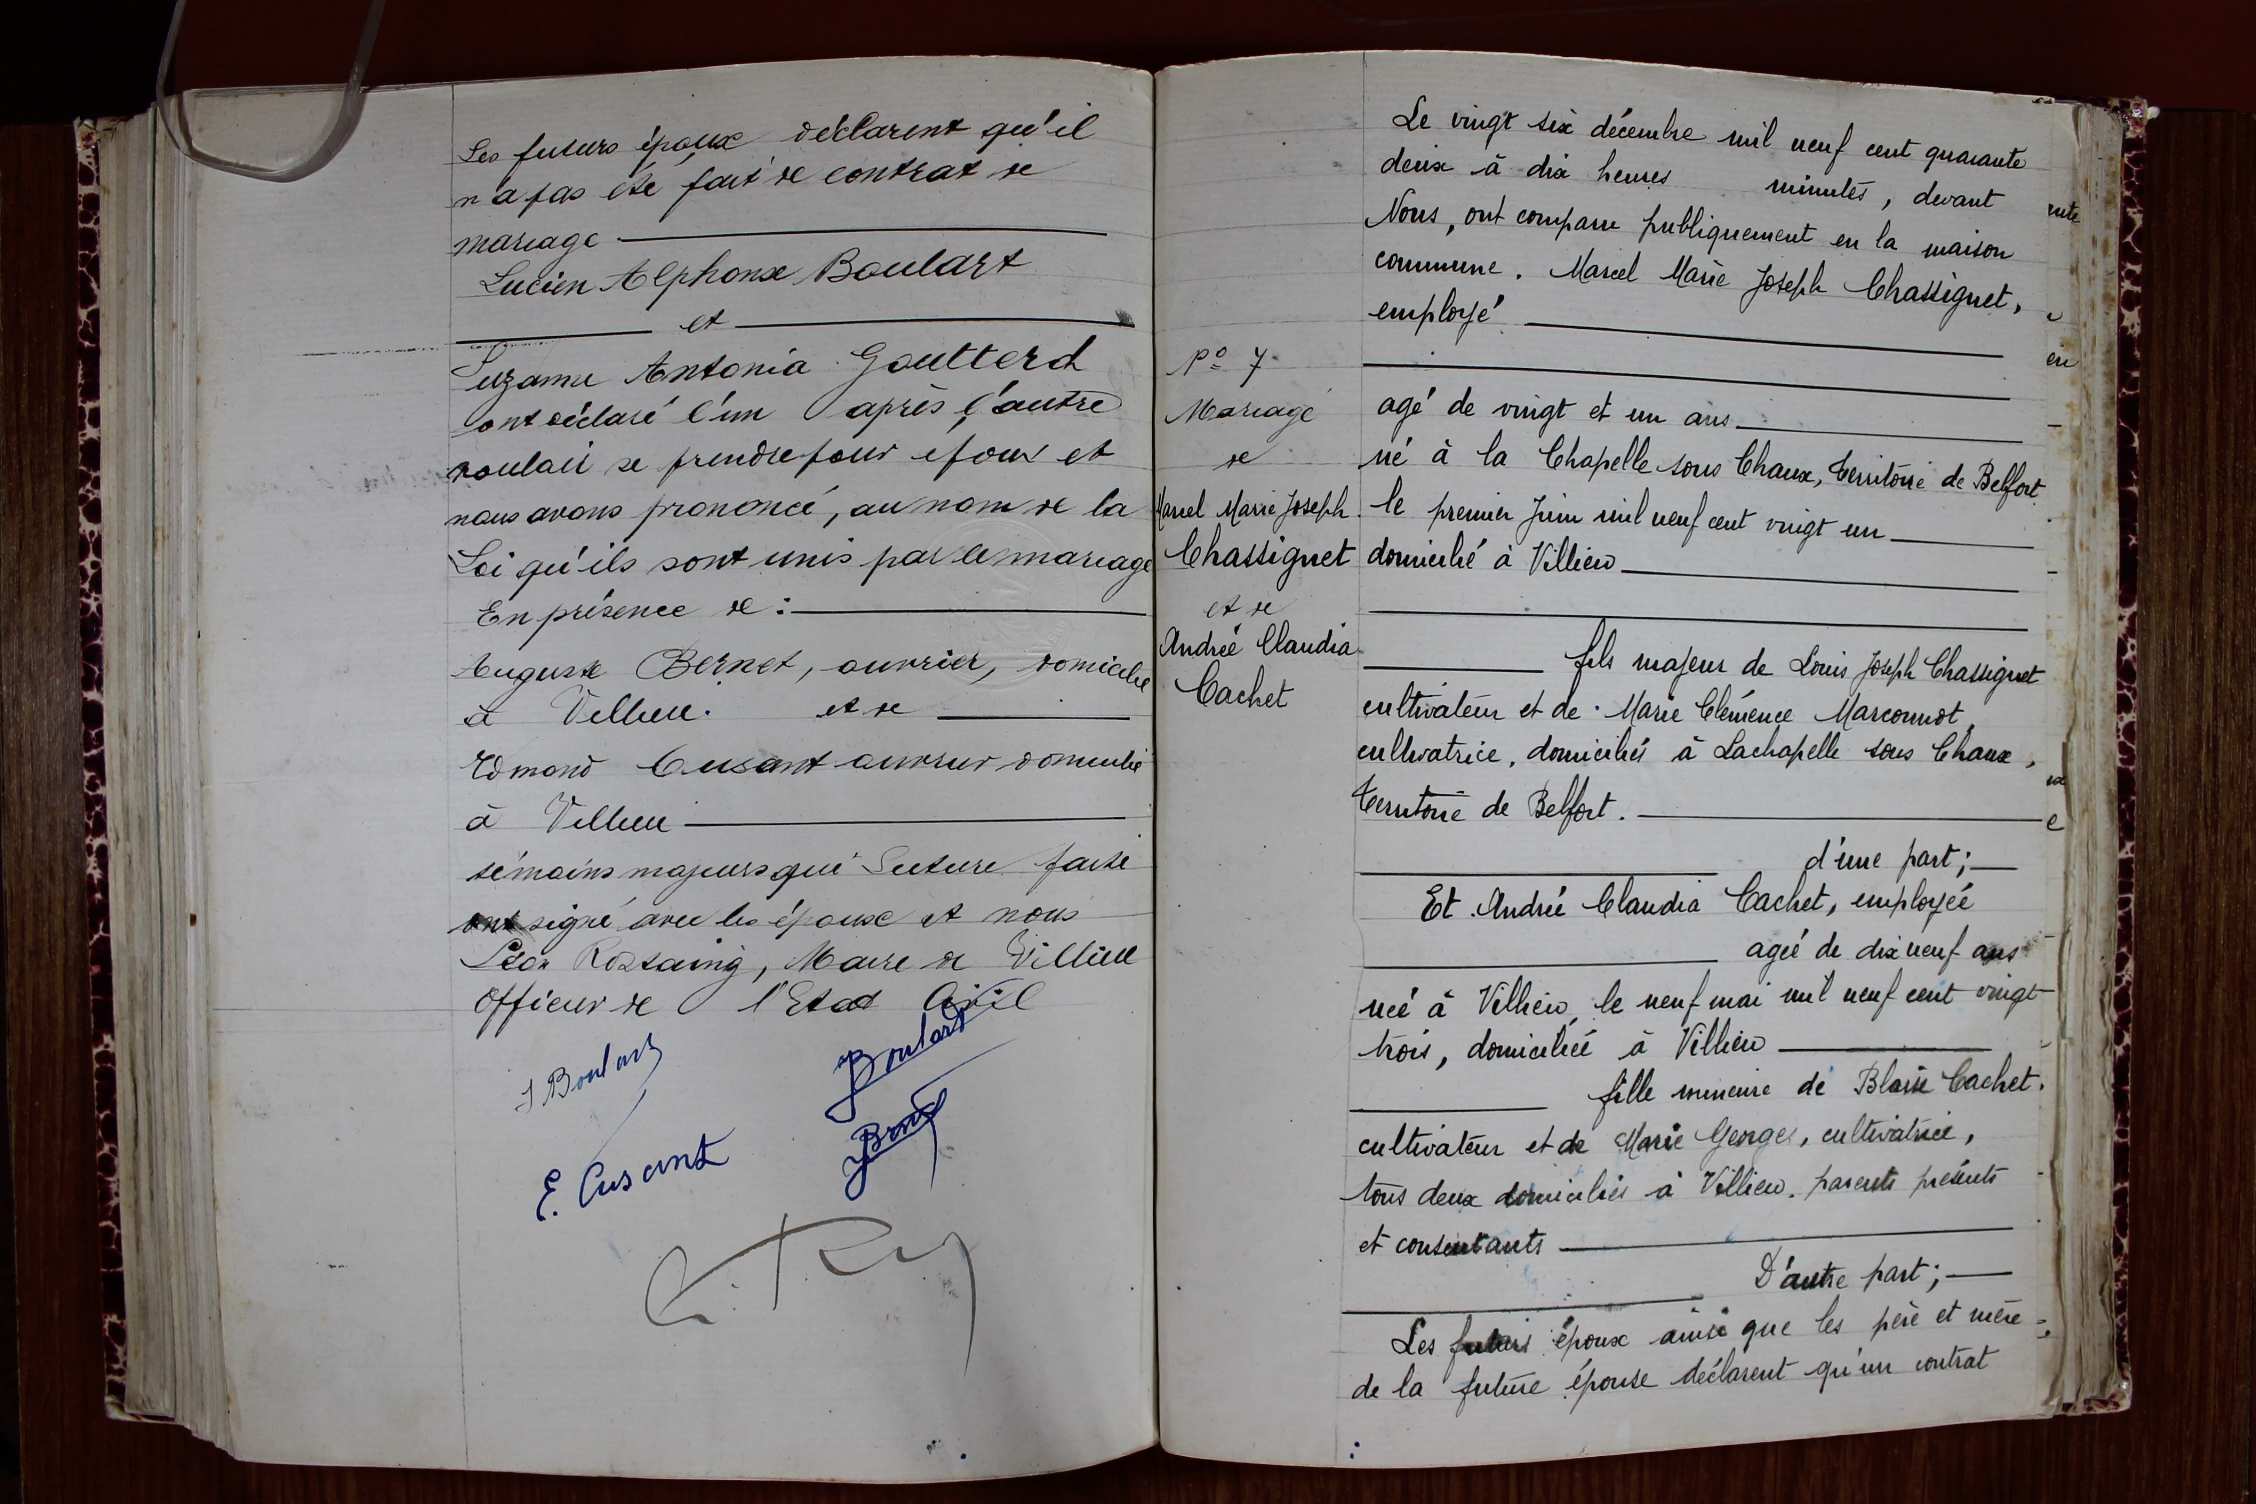 Les futurs époux déclarent qu'il
n'a pas été fait de contrat de
mariage
Lucien Alphonse Boulart
et
Suzanne Antonia Goutterd
ont déclaré l'un après l'autre
vouloir se prendre pour époux et
nous avons prononcé, au nom de la
Loi qu'ils sont unis par le mariage
En présence de :
Auguste Bernet, ouvrier, domicilié
à Villieu. et de
Edmond Cusant ouvrier domicilié
à Villieu
témoins majeurs qui lecture faite
ont signé avec les époux et nous
Léon Rostaing, Maire de Villieu
Officier de l'Etat Civil
Boulart
E. Cusant
N° 7
Mariage
de
Marcel Marie Joseph
Chassignet
et de
Andrée Claudia
Cachet
Le vingt six décembre mil neuf cent quarante
deux à dix heures minutes, devant
Nous, ont comparu publiquement en la maison
commune. Marcel Marie Joseph Chassignet,
employé
agé de vingt et un ans
né à la Chapelle sous Chaux, Territoire de Belfort
le premier Juin mil neuf cent vingt un
domicilié à Villieu
fils majeur de Louis Joseph Chassignet
cultivateur et de Marie Clémence Marconnot,
cultivatrice, domiciliés à Lachapelle sous Chaux,
Territoire de Belfort.
d'une part;
Et Andrée Claudia Cachet, employée
agée de dix neuf ans
née à Villieu le neuf mai mil neuf cent vingt
trois, domiciliée à Villieu
fille mineure de Blaise Cachet.
cultivateur et de Marie Georges, cultivatrice,
tous deux domiciliés à Villieu. parents présents
et consentants
D'autre part;
Les futurs époux ainsi que les père et mère
de la future épouse déclarent qu'un contrat